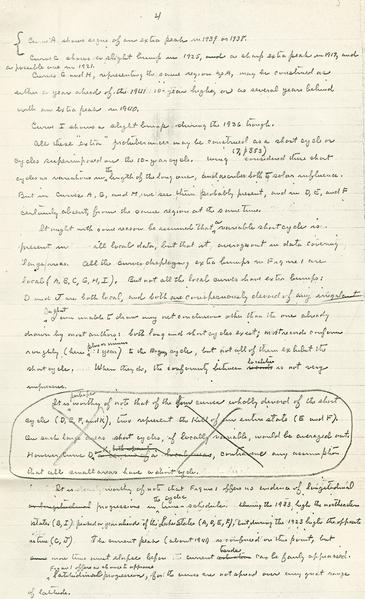 4
Curve A shows signs of an extra peak in 1939 or 1938.
Curve C shows a slight bump in 1925, and a sharp extra peak in 1917, and
a possible one in 1921.
Curves G and H, representing the same region as A, may be construed as
either a year ahead of the 1941 10-year highs, or as several years behind
with an extra peak in 1940.
Curve I shows a slight bump during the 1936 trough.
All these extra protuberances may be construed as a short cycle or
cycles superimposed on the 10-year cycle. Wing (7, p 353) considered these short
cycles as variations in the length of the long one, and ascribes both to solar influence.
But in Curves A, G, and H, we see them probably present, and in D, E, and F
certainly absent, from the same region at the same time.
It might with some reason be assumed that a variable short cycle is
present in all local data, but that it averages out in data covering
large areas. All the curves displaying extra bumps in Figure 1 are
local (A, B, C, G, H, I). But not all the local curves have extra bumps:
D and J are both local, and both are conspicuously devoid of any
I am unable to draw any out conclusions other than the one already
drawn by most authors: both long and short cycles exist; most records conform
roughly (here plus or minus 1 year) to the 10-year cycle, but not all of them exhibit the
short cycle. When they do, the conformity between localities is not very
impressive.
It is perhaps worthy of note that of the four curves wholly devoid of the short
cycle (D, E, F, and K), two represent the kill of an entire state (E and F).
On such large areas short cycles, if locally variable, would be averaged out.
However curve D, any assumption
that all small areas have a short cycle.
It is worthy of note that Figure 1 offers no evidence of longitudinal
progressions in the cycle schedules. During the 1933 high the northeastern
states (B, I) peaked or the Lake States (A, D, E, F), but during the 1923 high the opposite
is true (C, J). The current peak (about 1941) is confused on this point, but
more time must elapse before the current trends can be fairly appraised.
Figure 1 offers no chance to appraise
latitudinal progressions, for the curves are not spread over any great range
of latitude.